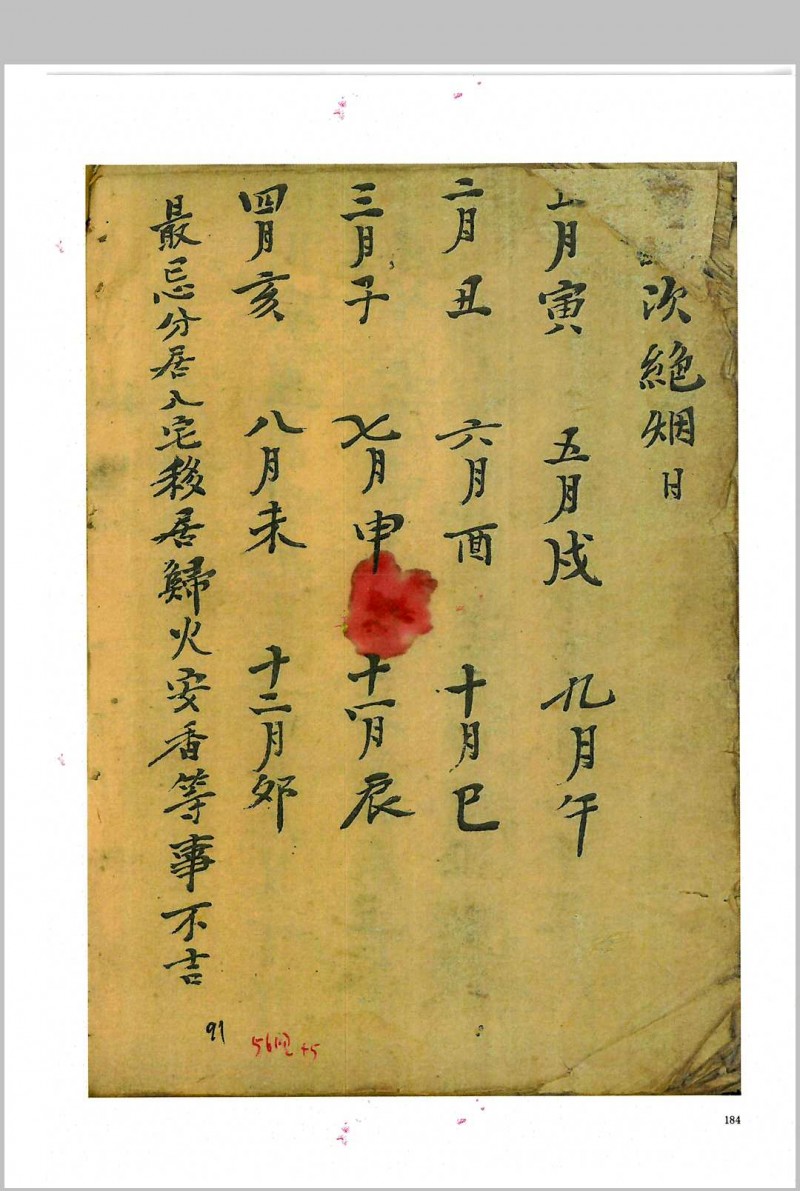 次絶烟日
正月寅 五月戌 九月午
二月丑 六月酉 十月巳
三月子 七月申 十一月辰
四月亥 八月未 十二月卯
最忌分居入宅移居歸火安香等事不吉
91
184